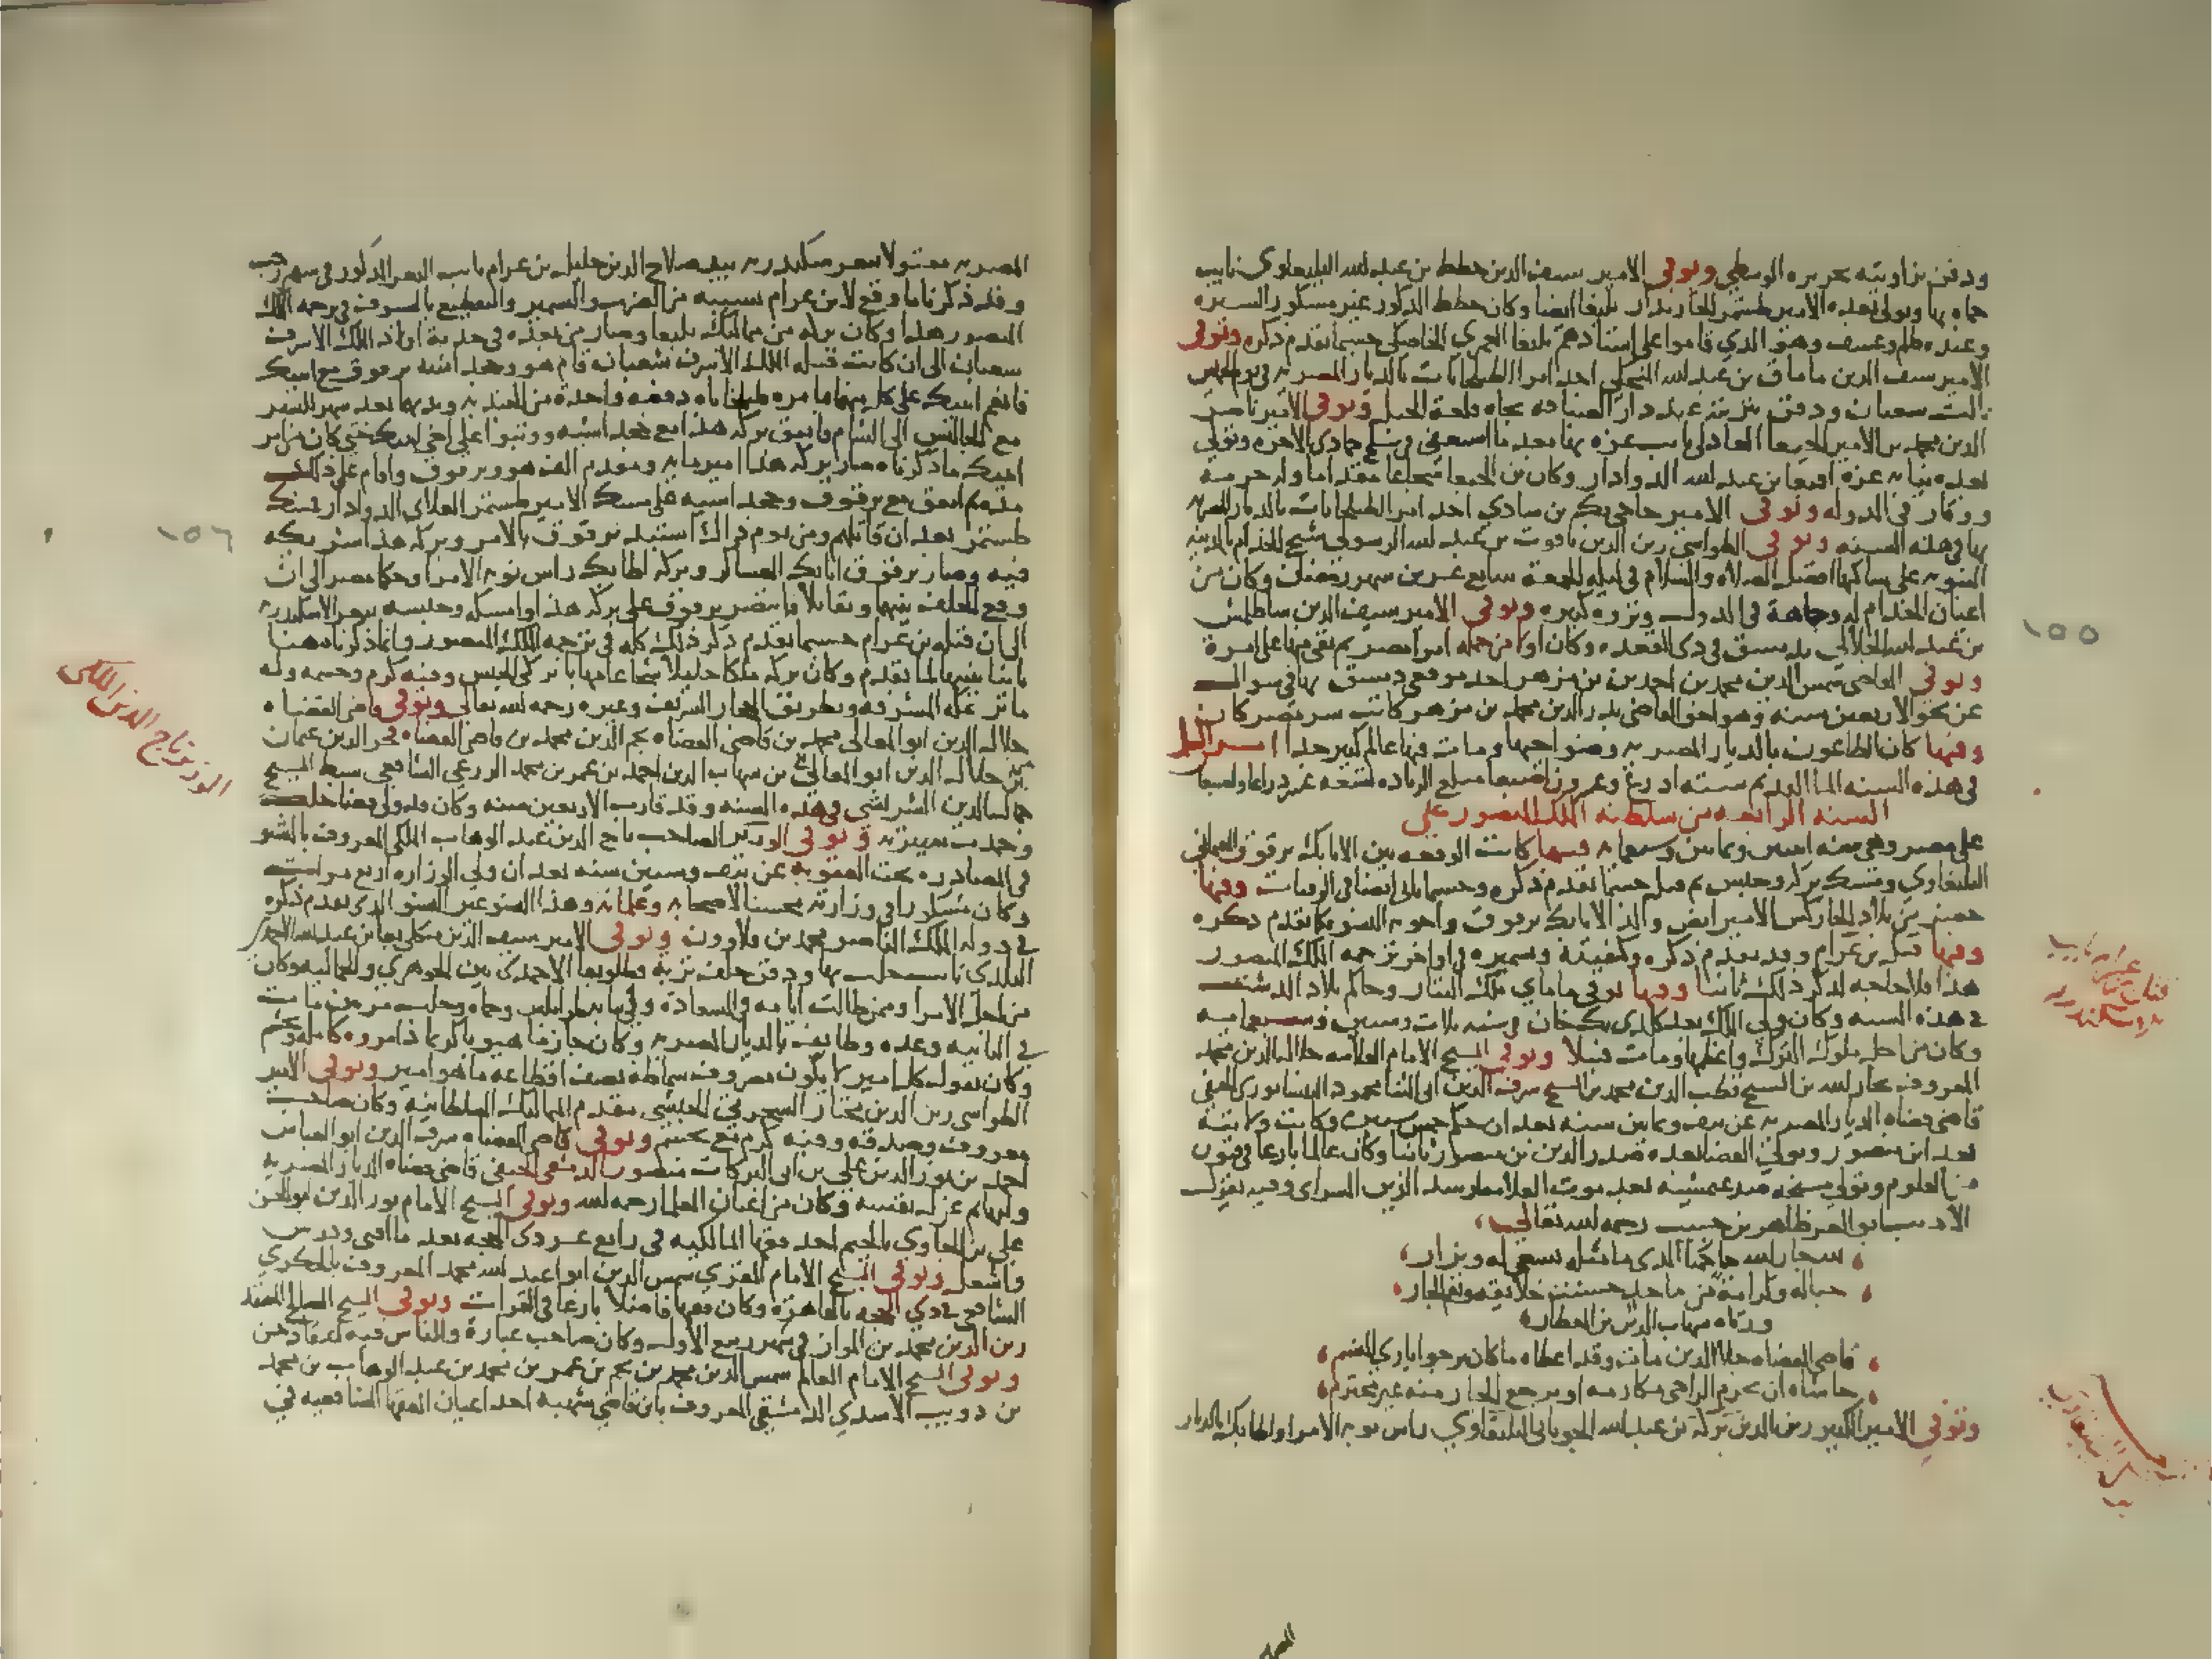 ودفن بزاويته بجزيرة الوسطى وتوفى الامير سيف الدين حطط بن عبد الله اليلبغاوى نايب
حماه بها وتولى بعده الامير طشتمر يلبغا ايضا وكان حطط المذكور غير مشكور السيره
وعنده ظلم وعسف وهو الذى قاموا على استاذهم يلبغا العمرى الخاصكى حسبما تقدم ذكره وتوفى
الامير سيف الدين ماماق بن عبد الله المنجكى احد امرا الطبلخانات بالديار المصريه فى يوم الخميس
ثالث شعبان ودفن بتربته عند دار الضيافه تجاه قلعة الجبل وتوفى الامير ناصر
الدين محمد بن الامير الجيبغا العادلى نايب غزه بها بعد ما استعفى فى سلخ جمادى الاخره وتولى
بعده نيابه غزة اقبغا بن عبد الله الدوادار وكان بن الجيبغا شجاعا مقداما وله حرمه
ووقار فى الدوله وتوفى الامير حاجى بك بن شادى احد امرا الطبلخانات بالديار المصريه
بها فى هذه السنه وتوفى الطواشى زين الدين ياقوت بن عبد الله الرسولى شيخ الخدام بالمدينه
النبويه على ساكنها افضل الصلاه والسلام فى ليله الجمعة سابع عشرين شهر رمضان وكان من
اعيان الخدام له وجاهة فى الدول وثروه كبيره وتوفى الامير سيف الدين ساطلمش
بن عبد الله الجلالى بدمشق فى ذى القعده وكان اولا من جمله امرا مصر ثم نفى منها على امرة
وتوفى القاضى شمس الدين محمد بن احمد بن مزهر احد موقعى دمشق بها فى شوال
عن نحو الاربعين سنه وهو اخو القاضى بدر الدين محمد بن مزهر كاتب سر مصر كان
وفيها كان الطاعون بالديار المصريه وضواحيها ومات فيها عالم كبير جدا امر النيل
فى هذه السنه الما القديم سته اذرع وعشرون اصبعا مبلغ الزياده تسعة عشر ذراعا واصبعا
السنه الرابعه من سلطنه الملك المنصور على
على مصر وهى سنه اثنين وثمانين وسبعمايه فيها كانت الوقعه بين الاتابك برقوق العثمانى
اليلبغاوى ومسك بركه وحبس ثم قتل حسبما تقدم ذكره وحسبما ياتى ايضا فى الوفيات وفيها
حضر من بلاد الجاركس الامير انص والد الاتابك برقوق واخوه النسوه كما تقدم ذكره
وفيها قتل بن عرام وقد تقدم ذكره وكيفيته وتسميره فى اواخر ترجمه الملك المنصور
هذا فلا حاجه لذكر ذلك ثانيا وفيها توفى ماماى ملك التتار وحاكم بلاد الدشت
فى هذه السنه وكان ولى الملك بعد كلدى بك خان فى سنه ثلاث وستين وسبعمايه
وكان من اجل ملوك الترك واعظمها ومات قتيلا وتوفى الشيخ الامام العلامه جلال الدين محمد
المعروف بجار الله بن الشيخ قطب الدين محمد بن الشيخ شرف الدين ابى الثنا محمود النيسابورى الحنفى
قاضى قضاه الديار المصريه عن نيف وثمانين سنه بعد ان حكم خمس سنين وكانت ولايته
بعد ابن منصور وتولى القضا بعده صدر الدين بن منصور ثانيا وكان عالما بارعا فى فنون
من العلوم وتولى مشيخه صرغتمشيه بعد موت العلامه ارشد الدين السرائى وفيه يقول
الاديب ابو العز طاهر بن حبيب رحمه الله تعالى
جار الله حاكمنا الذى ما مثله يسعى له ويزار
حباله وكرامة من ماجد حسنت خلايقه ونعم الجار
ورثاه شهاب الدين بن العطار
قاضى القضاه جلال الدين مات وقد اعطاه ما كان يرجو بارى النسم
حاشاه ان يحرم الراجى مكارمه او يرجع الجار منه غير محترم
وتوفى الامير الكبير زين الدين بركه بن عبد الله الجوبانى اليلبغاوى راس نوبه الامرا واطابك بالديار
١٥٥
المصريه مقتولا بثغر سكندريه بيد صلاح الدين خليل بن عرام نايب الثغر المذكور فى شهر رجب
وقد ذكرنا ما وقع لابن عرام بسببه من الضرب والتسمير والتقطيع بالسيوف فى ترجمه الملك
المنصور هذا وكان بركه من مماليك يلبغا وصار من بعده فى خدمة اولاد الملك الاشرف
شعبان الى ان كانت قتله الملك الاشرف شعبان قام هو وخجداشه برقوق مع اينبك
فانعم اينبك على كل منهما بامره طبلخاناه دفعه واحدة من الجنديه وندبهما بعد شهر للسفر
مع الجاليش الى الشام فاتفق بركه هذا مع خجداشيه ووثبوا على اخى اينبك حتى كان من امر
اينبك ما ذكرناه وصار بركه هذا امير مايه ومقدم الف هو وبرقوق واقام على ذلك
مده ثم اتفق مع برقوق وخجداشيه على مسك الامير طشتمر العلائى الدوادار فمسك
طشتمر بعد ان قاتلهم ومن يوم ذاك استبد برقوق بالامر وبركه هذا شريكه
فيه وصار برقوق اتابك العساكر وبركه اطابك راس نوبه الامرا وحكما مصر الى ان
وقع الخلف بينهما وتقاتلا فانتصر برقوق على بركه هذا وامسكه وحبسه بثغر الاسكندريه
الى ان قتله بن عرام حسبما تقدم ذكر ذلك كله فى ترجمه الملك المنصور وانما ذكرناه هنا
ثانيا تنبيها لما تقدم وكان بركه ملكا جليلا شجاعا مهابا تركى الجنس وفيه كرم وحشمه وله
ماثر بمكه المشرفه وبطريق الحجاز الشريف وغيره رحمه الله تعالى وتوفى قاضى القضاه
جلال الدين ابو المعالى محمد بن قاضى القضاه نجم الدين محمد بن قاضى القضاه فخر الدين عثمان
بن جلال الدين ابو المعالى بن شهاب الدين احمد بن عمر بن محمد الزرعى الشافعى سبط الشيخ
جمال الدين الشريشى فى هذه السنه وقد قارب الاربعين سنه وكان قد ولى قضا حلب
وحمدت سيرته وتوفى الوزير الصاحب تاج الدين عبد الوهاب الملكى المعروف بالنشو
فى المصادره تحت العقوبه عن نيف وستين سنه بعد ان ولى الوزاره اربع مرات
وكان مشكورا فى وزارته محسنا لاصحابه وغلمانه وهذا النشو غير النشو الذى تقدم ذكره
فى دوله الملك الناصر محمد بن قلاوون وتوفى الامير سيف الدين منكلى بغا بن عبد الله الاحمدى
البلدى نايب حلب بها ودفن خلف تربة قطلوبغا الاحمدى بين الجوهرى والجماليه وكان
من اجل الامرا وممن طالت ايامه فى السعادة وولى نيابه طرابلس وحماه وحلب مرتين مات
فى الثانيه وعده وظايف بالديار المصريه وكان حازما هيوبا كريما ذا مروه كامله وحشم
وكان يقول كل امير لا يكون مصروف سماطه نصف اقطاعه ما هو امير وتوفى الامير
الطواشى زين الدين مختار السحرتى الحبشى مقدم المماليك السلطانيه وكان صاحب
معروف وصدقه وفيه كرم مع تحشم وتوفى قاضى القضاه شرف الدين ابو العباس
احمد بن نور الدين على بن ابى البركات منصور الدمشقى الحنفى قاضى قضاه الديار المصريه
وليها ثم عزل نفسه وكان من اعيان العلما رحمه الله وتوفى الشيخ الامام نور الدين ابو الحسن
على بن الجاوى بالجيم احد فقها المالكيه فى رابع عشر ذى الحجه بعد ما افتى ودرس
واشغل وتوفى الشيخ الامام المقرى شمس الدين ابو عبد الله محمد المعروف بالحكرى
الشافعى فى ذى الحجه بالقاهرة وكان فقيها فاضلا بارعا فى القرات وتوفى الشيخ الصالح المعتقد
زين الدين محمد بن المواز فى شهر ربيع الاول وكان صاحب عبارة وللناس فيه اعتقاد حسن
وتوفى الشيخ الامام العالم شمس الدين محمد بن نجم بن عمر بن محمد بن عبد الوهاب بن محمد
بن ذويب الاسدى الدمشقى المعروف بابن قاضى شهبه احد اعيان الفقها الشافعيه فى
الوزير تاج الدين الملكى
١٥٦